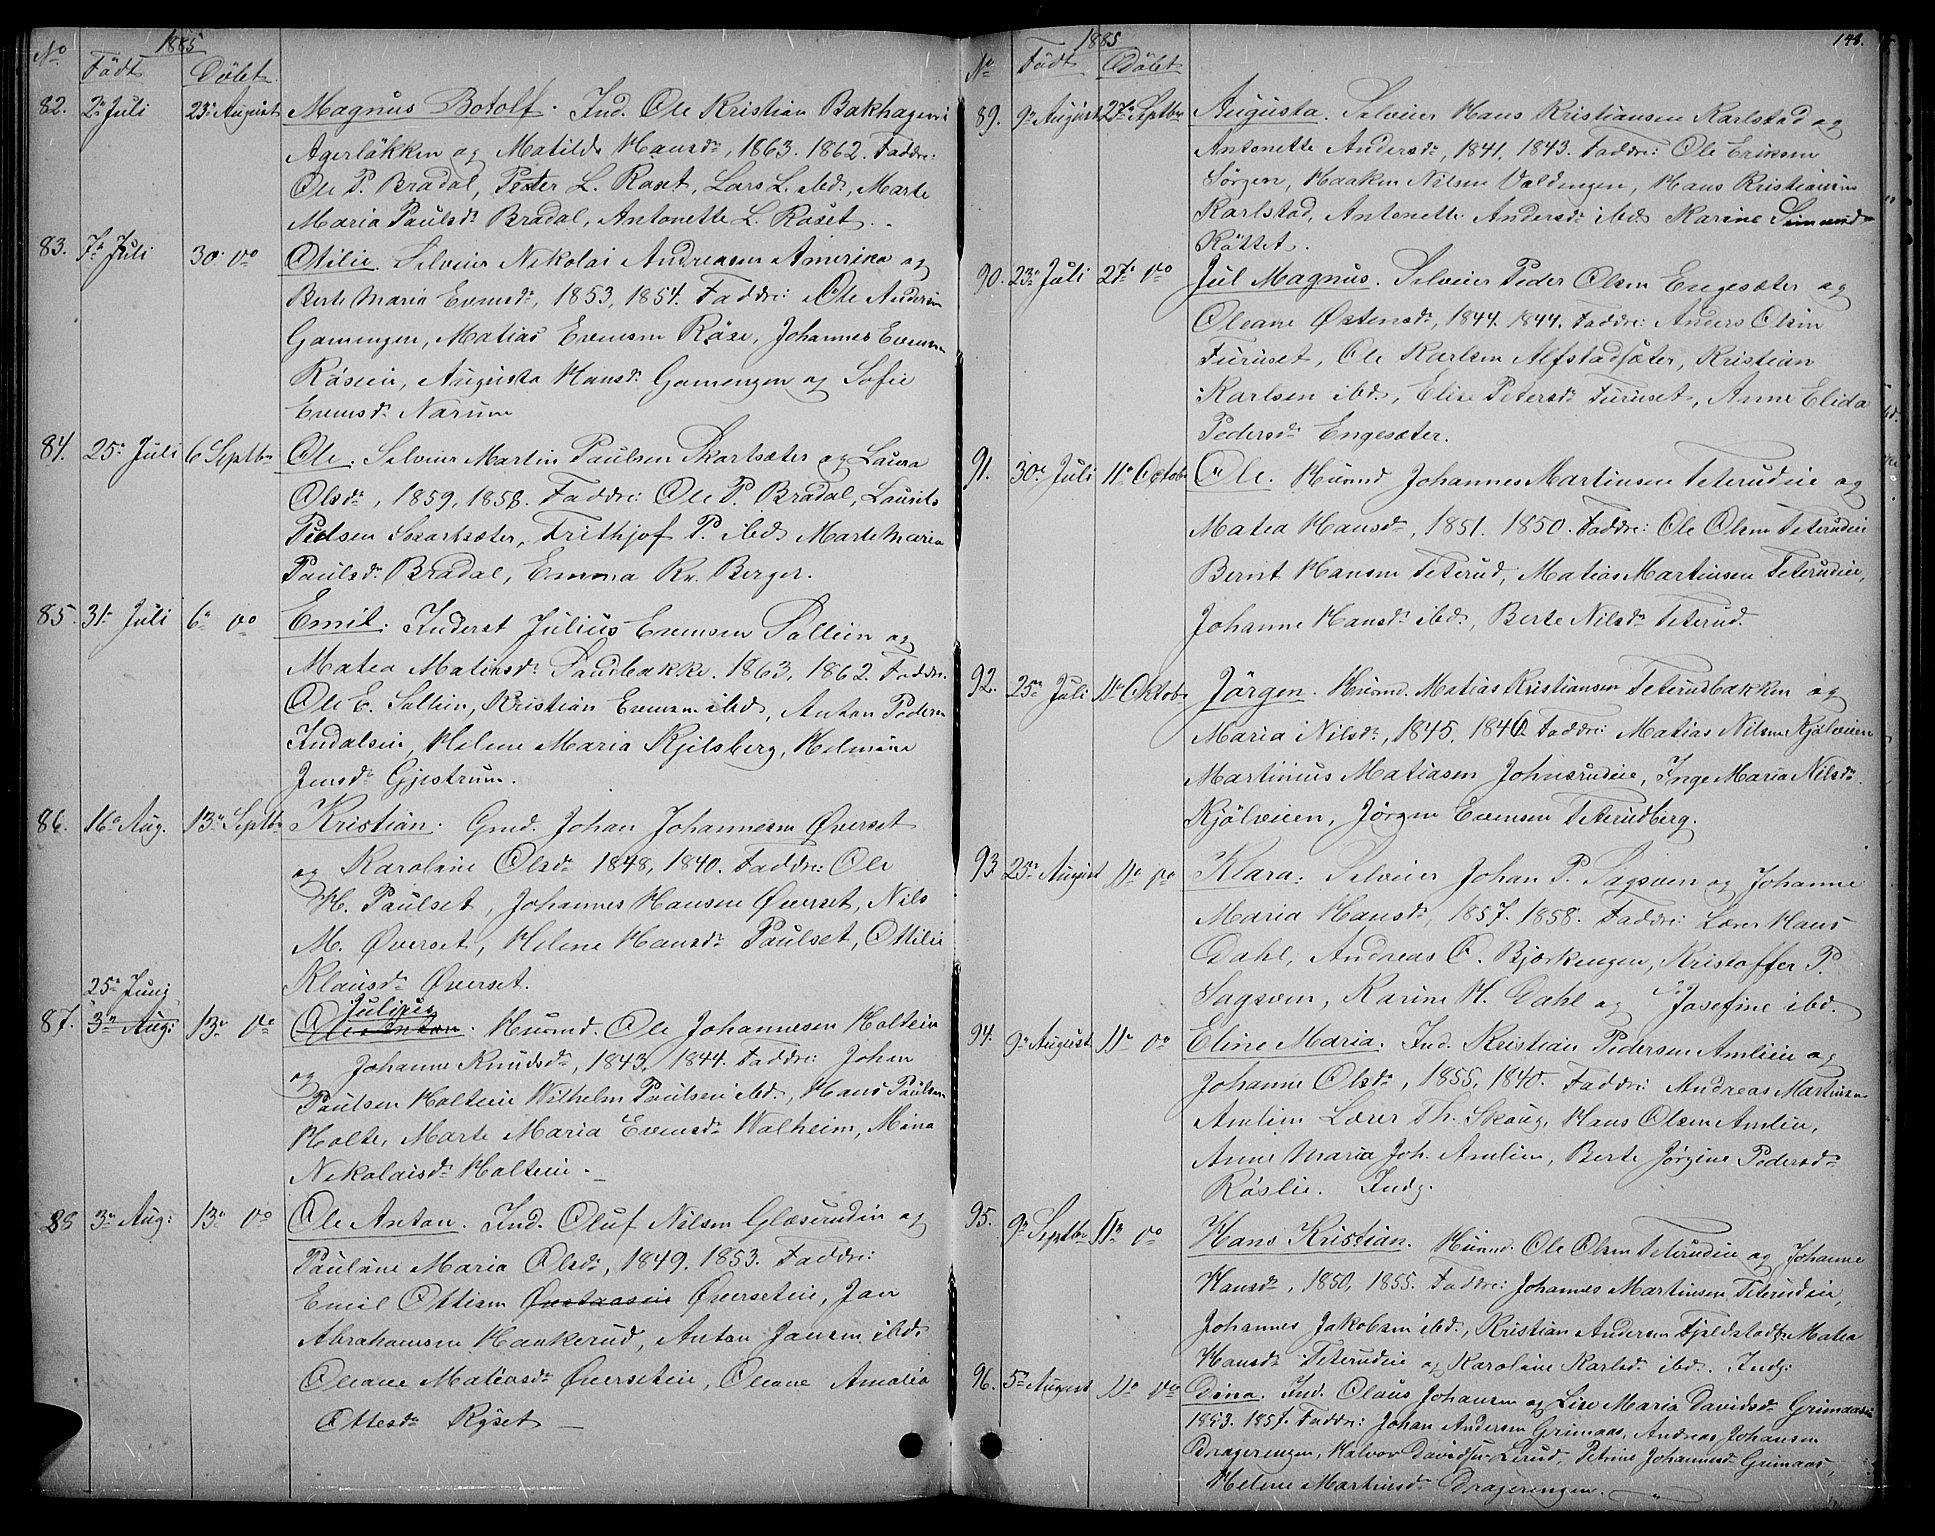 1885
No Födt Döbt
82. 2n Juli 23n August Magnus Botolf. Ind. Ole Kristian Bakhageni
Agerløkken og Matilde Hansdr, 1863. 1862. Faddre:
Ole P. Bradal, Peter L. Roset, Lars L. ibd, Marte
Maria Paulsdr Bradal, Antonette L. Roset.
83. 7n Juli 30 do Otilie. Selveier Nikolai Andreasen Amerika og
Berte Maria Evensdr, 1853, 1854. Faddre: Ole Andersen
Gamengen, Matias Evensen Röse, Johannes Evensen
Röseiei, Augusta Hansdr Gamengen og Sofie
Evensdr Narum
84. 25n Juli 6 Septbr Ole. Selveier Martin Paulsen Skartsæter og Laura
Olsdr, 1859, 1858. Faddre: Ole P. Bradal, Laurits
Paulsen Skartsæter, Frithjof P. ibd, Marte Maria
Paulsdr Bradal, Emma Kr. Berger.
85. 31n Juli 6n do Emil. Inderst Julius Evensen Sollien og
Matea Matiasdr Sandbakke. 1863, 1862. Faddre.
Ole E. Sollien, Kristian Evensen ibd, Anton Pedersen
Indalseie, Helene Maria Kjelsberg, Helmine
Jensdr Gjestrum.
86. 16n Aug. 13n Septbr Kristian. Gmd. Johan Johannesen Øverset
og Karoline Olsdr 1848, 1840. Faddre: Ole
H. Paulset, Johannes Hansen Øverset, Nils
M. Øverset, Helene Hansdr Paulset, Ottilie
Klausdr Øverset.
25n Juni Julijus
87. 3n Aug: 13n do Ole Anton. Husmd. Ole Johannesen Holteie
og Johanne Knudsdr, 1843, 1844. Faddre: Johan
Paulsen Holteie Wilhelm Paulsen ibd, Hans Paulsen
Holte, Marte Maria Evensdr Walheim, Mina
Nikolaisdr Holteie.
88 3n Aug: 13n do Ole Anton. Ind. Oluf Nilsen Glæserudeie og
Pauline Maria Olsdr, 1849, 1853. Faddre:
Emil Ottisen Øverseteie, Jan
Abrahamsen Haakerud, Anton Jansen ibd.
Oleane Matiasdr Øverseteie, Oleane Amalia
Ottesdr Ryset
1885 148.
No Födt Döbt
89. 9n August 27n Septbr Augusta. Selveier Hans Kristiansen Karlstad og
Antonette Andersdr, 1841. 1843. Faddre: Ole Eriksen
Sörgen, Haaken Nilsen Valdengen, Hans Kristiansen
Karlstad, Antonette Andersdr ibd Karine Simensdr
Röttet.
90. 23n Juli 27n do Jul Magnus. Selveier Peder Olsen Engesæter og
Oleane Østensdr, 1844. 1844. Faddre: Anders Olsen
Furuset, Ole Karlsen Alfstadsæter, Kristian
Karlsen ibd, Elise Petersdr Furuset, Anne Elida
Pedersdr Engesæter.
91. 30n Juli 11n Octobr Ole. Husmd Johannes Martinsen Teterudeie og
Matea Hansdr, 1851. 1850. Faddre: Ole Olsen Teterudeie
Bernt Hansen Teterud, Matias Martinsen Teterudeie,
Johanne Hansdr ibd, Berte Nilsdr Teterud.
92. 25n Juli 11n Oktobr Jörgen. Husmd. Matias Kristiansen Teterudbakken og
Maria Nilsdr, 1845, 1846. Faddre: Matias Nilsen Kjölveien
Martinius Matiasen Johnsrudeie, Inge Maria Nilsdr
Kjölveien, Jörgen Evensen Teterudberg.
93 25n August 11n do Klara. Selveier Johan P. Sagsveen og Johanne
Maria Hansdr, 1857. 1858. Faddre: Lærer Hans
Dahl, Andreas O. Bjørkengen, Kristoffer P.
Sagsveen, Karine H. Dahl og Josefine ibd.
94. 9n August 11n do Eline Maria. Ind. Kristian Pedersen Amlien og
Johanne Olsdr, 1855, 1840. Faddre: Andreas Martinsen
Amlien Lærer Th. Skaug, Hans Olsen Amlien,
Anne Maria Joh. Amlien, Berte Jörgine Pedersdr
Röslie. Indg.
95. 9n Septbr 11n do Hans Kristian. Husmd. Ole Olsen Teterudeie og Johanne
Hansdr, 1850, 1855. Faddre: Johannes Martinsen Teterudeie,
Johannes Jakobsen ibd, Kristian Andersen Fjeldstad, Matea
Hansdr Teterudeie og Karoline Karlsdr ibd. Indg:
96. 5n August 11n do Dina. Ind. Olaus Johansen og Lise Maria Davidsdr Grimaaseie
1853. 1857. Faddre: Johan Andersen Grimaas, Andreas Johansen
Dragerengen, Halvor Davidsen Lerud, Petrine Johannesdr Grimaas,
Helene Martinsdr Dragerengen.